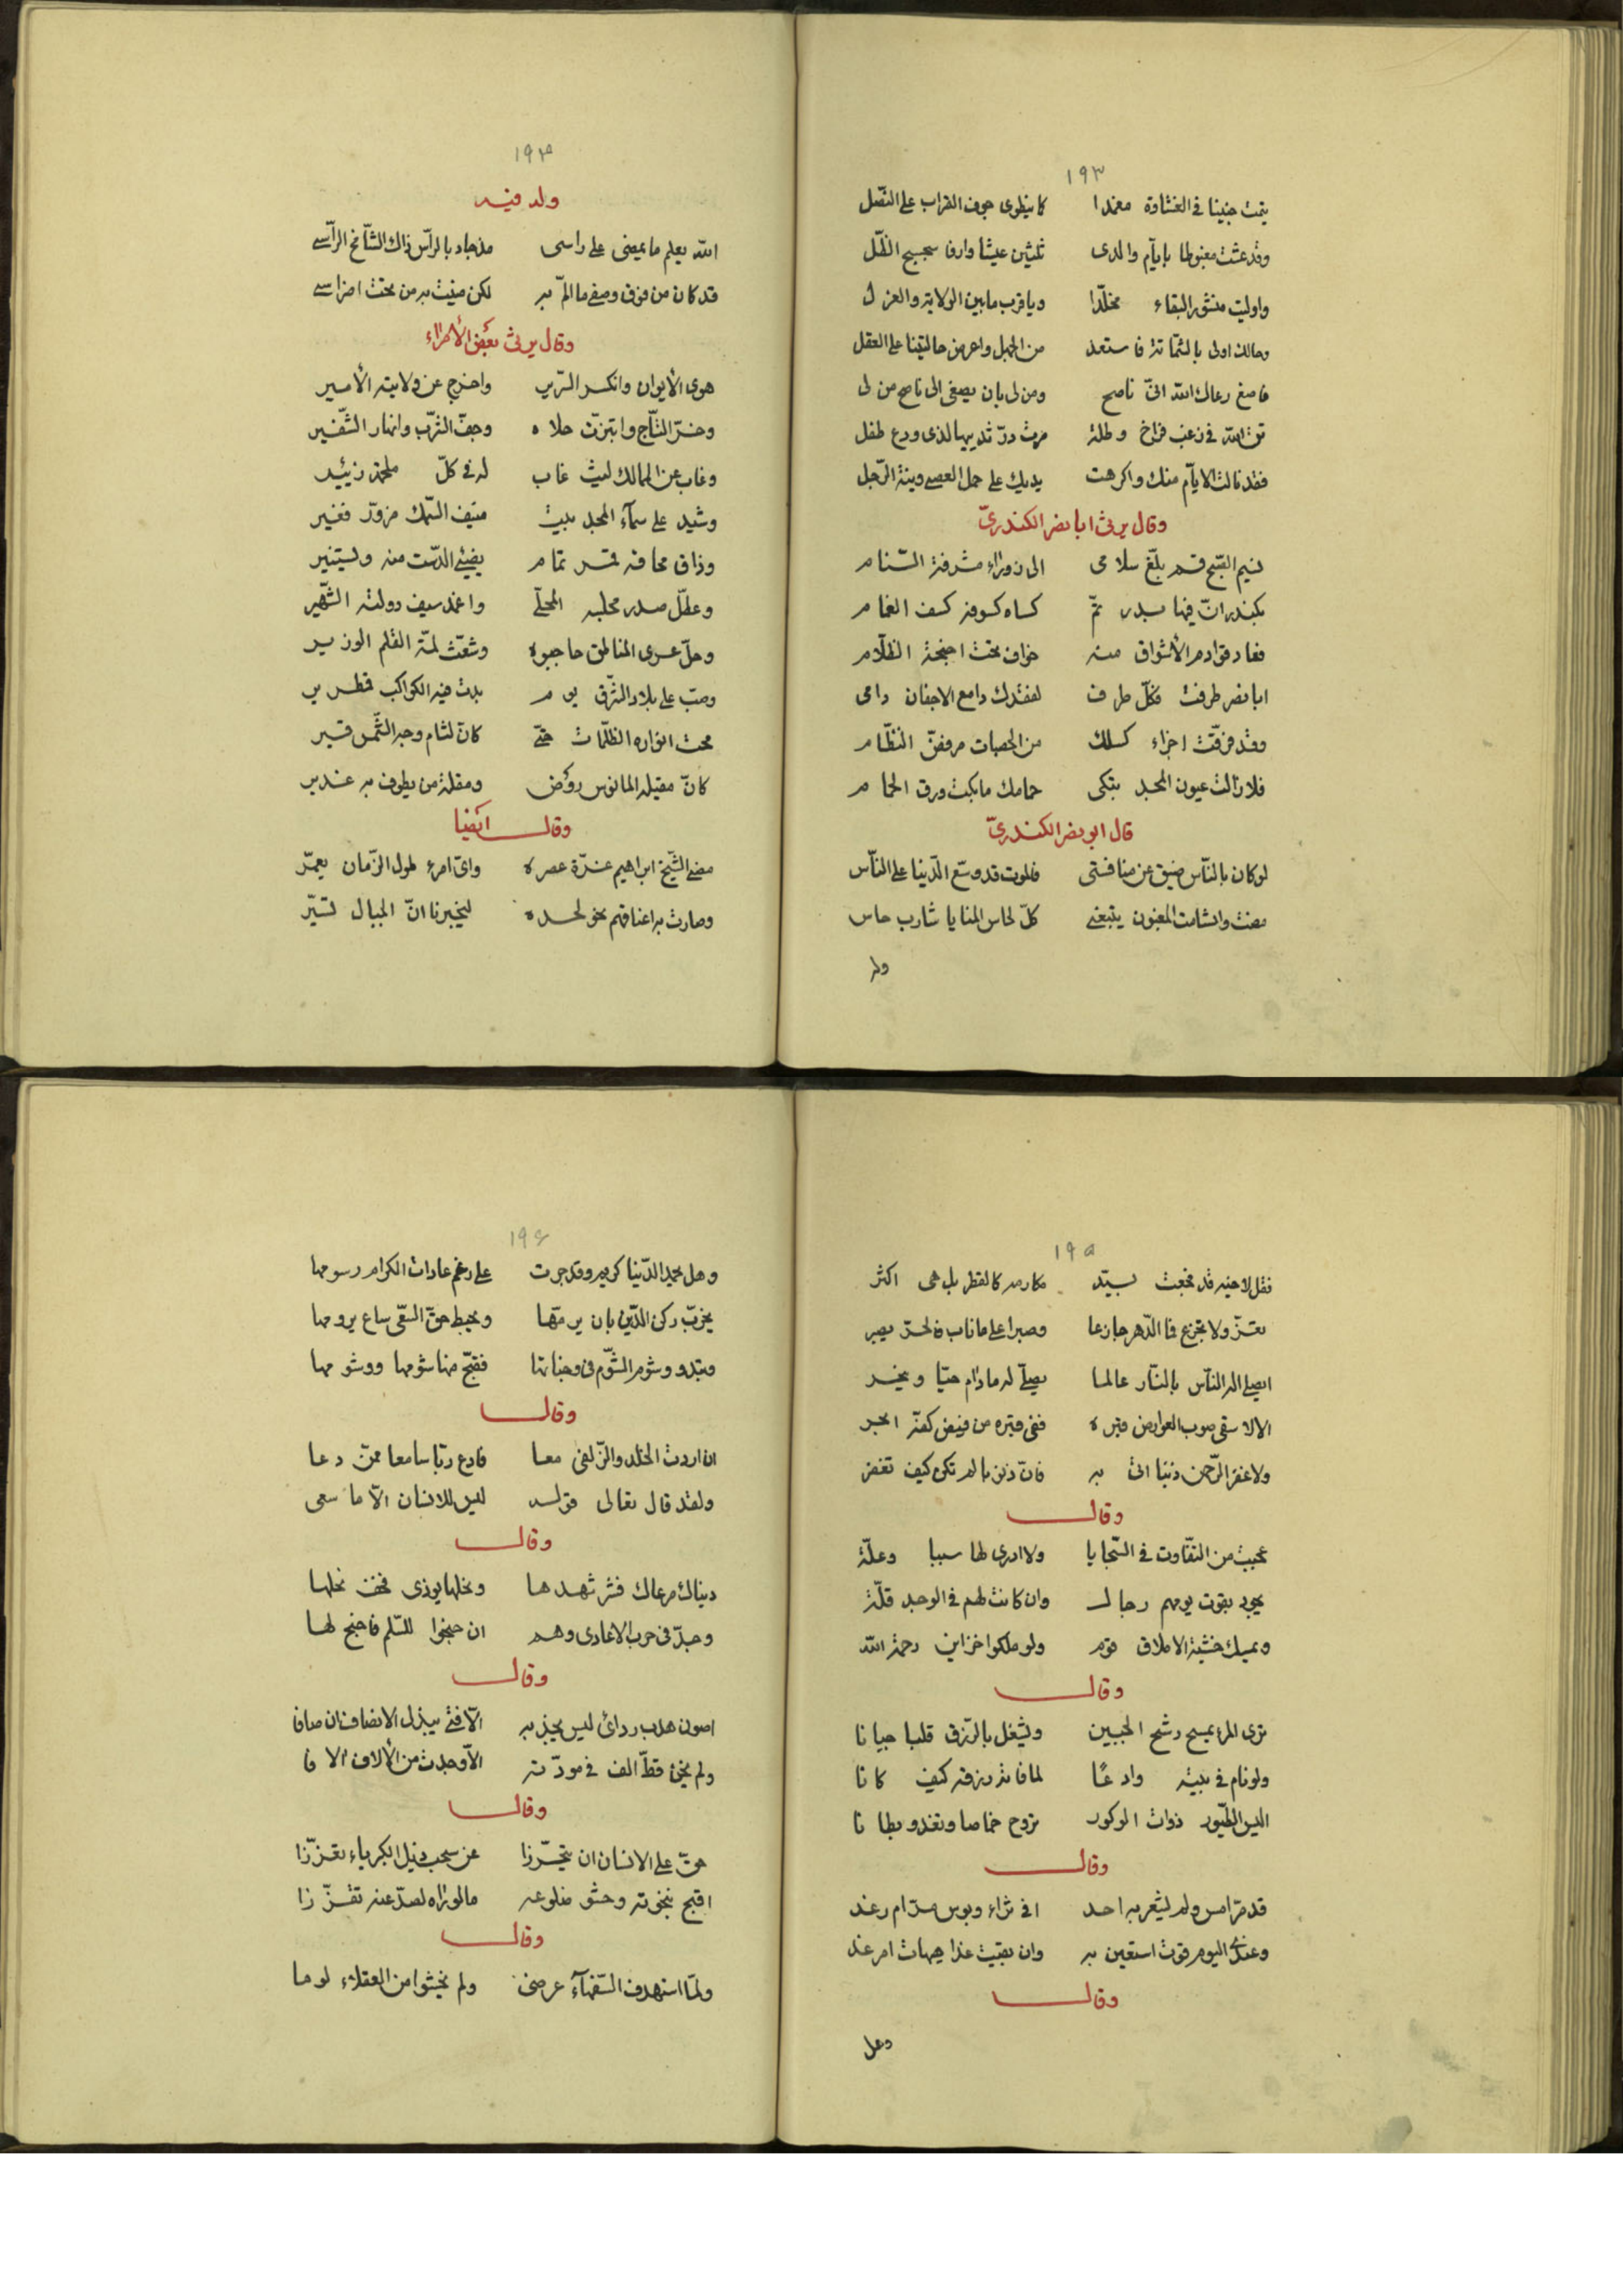 ١٩٣
يتمت جنينا في الغشاوة مغمدا كما ينطوى جوف القراب على النصل
وقد عشت مغبوطا بايام والدى ثلثين عيشا وارفا سجسج الظل
واوليت منشور البقاء مخلدا ويا قرب ما بين الولاية والعزل
وحالك اولى بالشماتة فاستعد من الجهل واعرض حالتينا على العقل
فاصغ رعاك الله انى ناصح ومن لى بان يصغى الى ناصح من لى
تق الله في زغب فراخ وطلة مرت در ثدييها لذى ودع طفل
فقد نالت الايام منك واكرهت يديك على حمل العصى وبنة الرجل
وقال يرثى ابا نصر الكندرىّ
نسيم الصبح قم بلغ سلامى الى زوراء مشرفة السنام
بكندر ان فيها بدر تم كساه كسوفه كسف الغمام
فعاد قوادم الاشواق منه خواف تحت اجنحة الظلام
ابا نصر طرفت فكل طرف لفقدك دامع الاجفان دامى
وقد فرقت اجزاء كسلك من الحصبات مرفض النظام
فلا زالت عيون المجد تبكى حمامك ما بكت ورق الحمام
قال ابو نصر الكندرىّ
لو كان بالناس ضيق عن منافستى فالموت قد وسع الدنيا على الناس
مضت والشامت المغبون يتبعنى كل لحاس المنايا شارب حاس
وله
١٩٤
وله فيه
الله يعلم ما يمضى على راسى مذ جاد بالراس ذاك الشامخ الراسى
قد كان من فوق وصفى ما الم به لكن منيت به من تحت اضراسى
وقال يرثى بعض الأمراء
هوى الأيوان وانكسر السرير واخرج عن ولايته الأمير
وخر التاج وابتزت حلاه وجف الثرب وانهار الشفير
وغاب عن الممالك ليث غاب له في كل ملحمة زئير
وشيد على سماء المجد بيت منيف السمك مزور فغير
وذاق محاقه قمر تمام يضيئ الدست منه ويستنير
وعطل صدر مجلسه المحلى واغمد سيف دولته الشهير
وحل عرى المناطق حاجبوه وشعث لمة القلم الوزير
وصب على بلاد الشرق يوم بدت فيه الكواكب قمطرير
محت انواره الظلمات حتى كان لثام وجه الشمس قير
كان مقيله المانوس روض ومقلة من يطوف به غدير
وقال ايضا
مضى الشيخ ابراهيم غرة عصره واى امرء طول الزمان يعمر
وصارت به اعناقهم نحو لحده ليخبرنا ان الجبال تسير
١٩٥
فقل لاخيه قد فجعت بسيد مكارمه كالقطر بل هى اكثر
تعز ولا تجزع فما الدهر جازعا وصبرا على ما ناب فالحر يصبر
ايصلى اله الناس بالنار عالما يصلى له ما دام حيا وينحر
الا لا سقى صوب العوارض قبره ففى قبره من فيض كفه ابحر
ولا غفر الرحمن ذنبا اتى به فان ذنوبا لم تكن كيف تغفر
وقال
عجبت من التفاوت في السجايا ولا ادرى لها سببا وعلة
يجود بقوت يومهم رجال وان كانت لهم في الوجد قلة
ويمسك خشية الاملاق قوم ولو ملكوا خزاين رحمة الله
وقال
ترى المرء يمسح رشح الجبين ويشغل بالرزق قلبا جبانا
ولو نام في بيته وادعًا لما فاته رزقه كيف كانا
اليس الطيور ذوات الوكور تروح خماصا وتغدو بطانا
وقال
قد مر امس ولم يشعر به احد افى ثراء وبوس مر ام رغد
وعندى اليوم قوت استعين به وان بقيت غدا هيهات امر غد
وقال
وهل
١٩٦
وهل يحمد الدنيا كريم وقد جرت على رغم عادات الكرام رسومها
يخرب ركن الدين بان يرمها ويحبط حق السعى ساع يرومها
وتبدو وشوم الشوم في وجناتها فقبح منها شومها ووشومها
وقال
ان اردت الخلد والزلفى معا فادع ربا سامعا ممن دعا
ولقد قال تعالى قوله ليس للانسان الا ما سعى
وقال
دنياك مرعاك فشر شهدها ونحلها يوذى فخف نحلها
وجد فى حرب الاعادى وهم ان جنحوا للسلم فاجنح لها
وقال
اصون هدب ردائى ليس يجذبه الا فتى يبذل الانصاف ان صافا
ولم يخنى قط الف في مودته الا وجدت من الألاف الافا
وقال
حق على الانسان ان يتحرزا عن سحب ذيل الكبرياء تعززا
اقبح بنخوته وحشو ضلوعه ما لو تراه لصد عنه تقززا
وقال
ولما استهدف السفهاء عرضى ولم يخشوا من العقلاء لوما